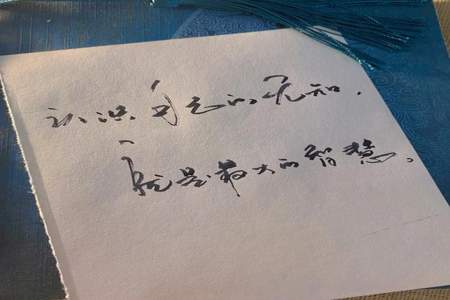 认识自己的无知，
就是最大的智慧。